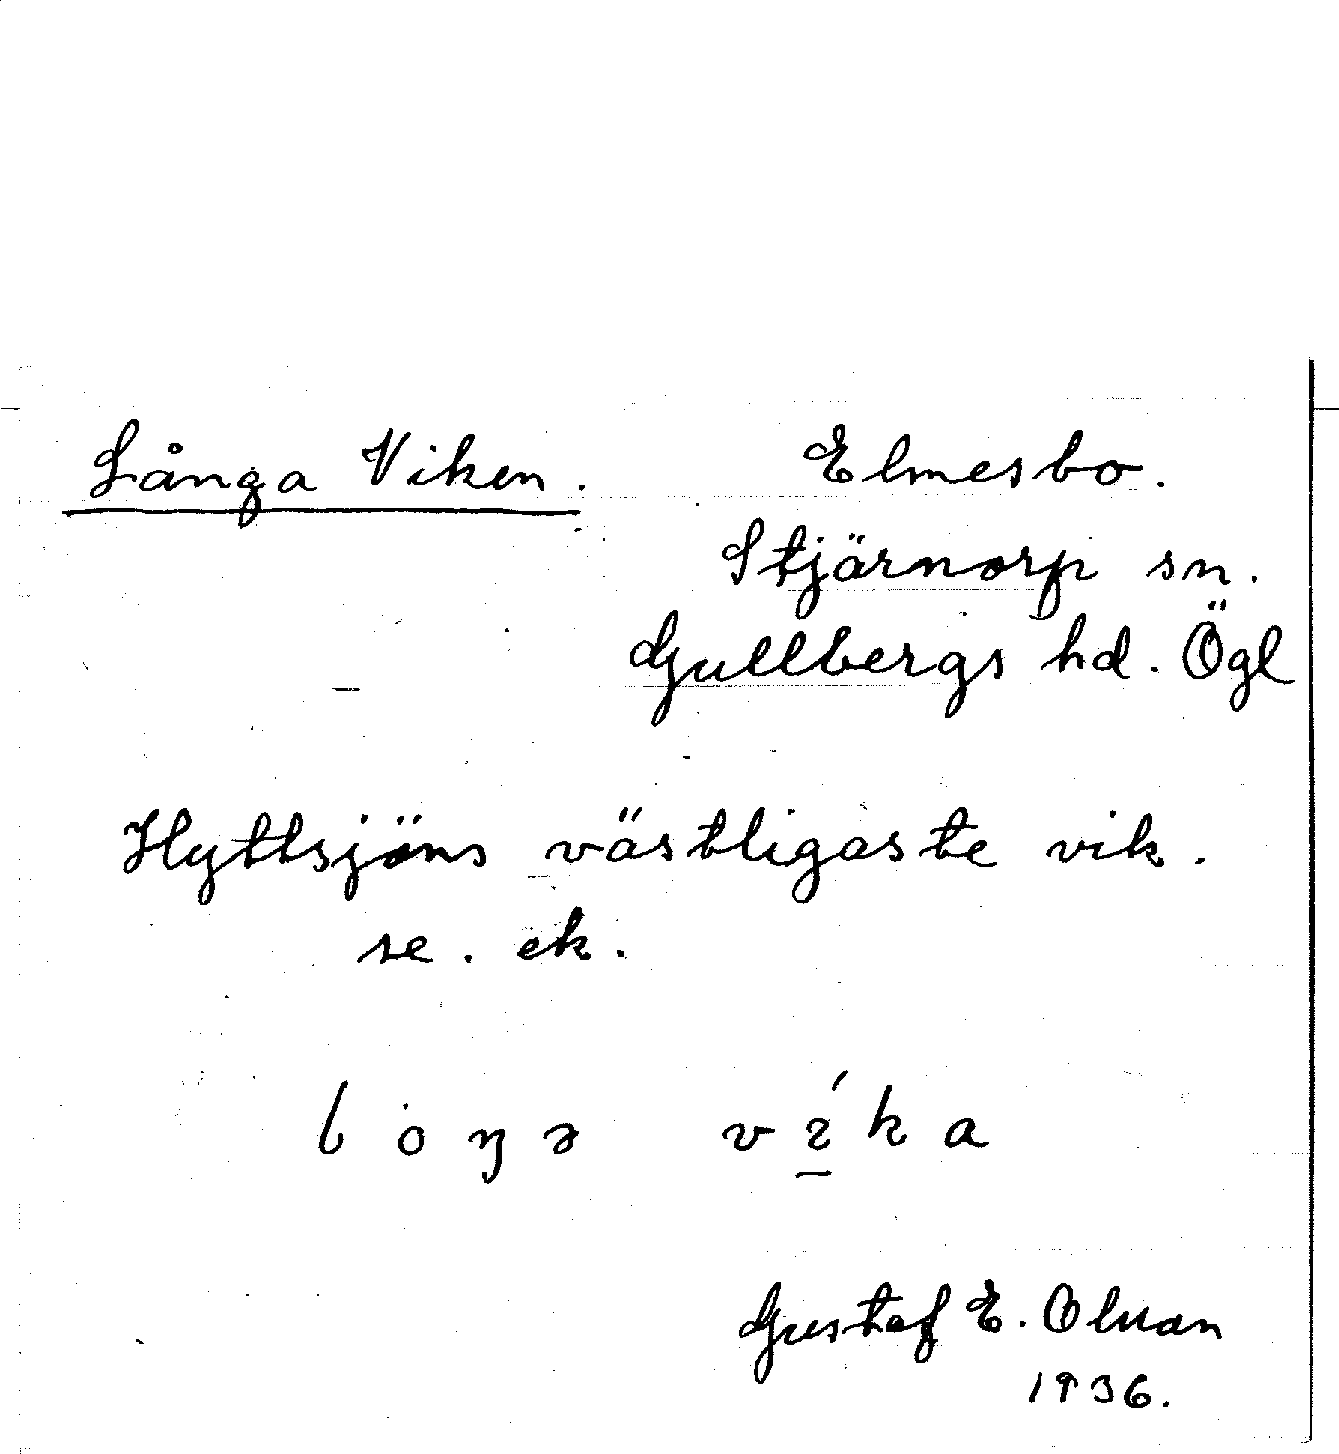 Långa Viken. Elmesbo.
Stjärnorp sn.
Gullbergs hd. Ögl
Hyttsjöns västligaste vik.
se. ek.
lȯŋə víka
Gustaf E. Olsson
1936.